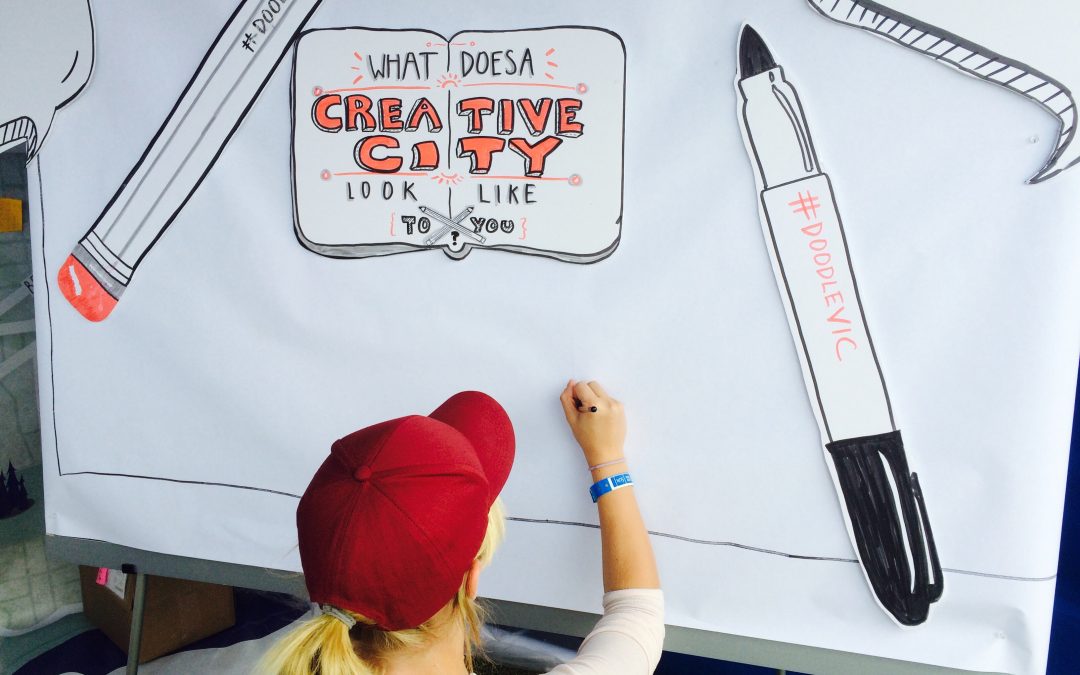 #DOOD
WHAT DOES A
CREATIVE
CITY
LOOK LIKE
{TO YOU}
?
#DOODLEVIC